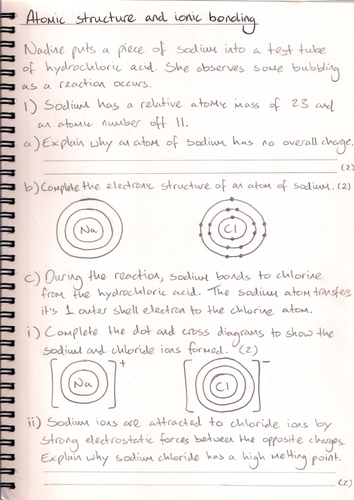 Atomic structure and ionic bonding
Nadine puts a piece of sodium into a test tube
of hydrochloric acid. She observes some bubbling
as a reaction occurs.
1) Sodium has a relative atomic mass of 23 and
an atomic number off 11.
a) Explain why an atom of sodium has no overall charge.
(2)
b) Complete the electronic structure of an atom of sodium. (2)
Na Cl
c) During the reaction, sodium bonds to chlorine
from the hydrochloric acid. The sodium atom transfers
it's 1 outer shell electron to the chlorine atom.
i) Complete the dot and cross diagrams to show the
sodium and chloride ions formed. (2)
Na + Cl −
ii) Sodium ions are attracted to chloride ions by
strong electrostatic forces between the opposite charges.
Explain why sodium chloride has a high melting point.
(2)